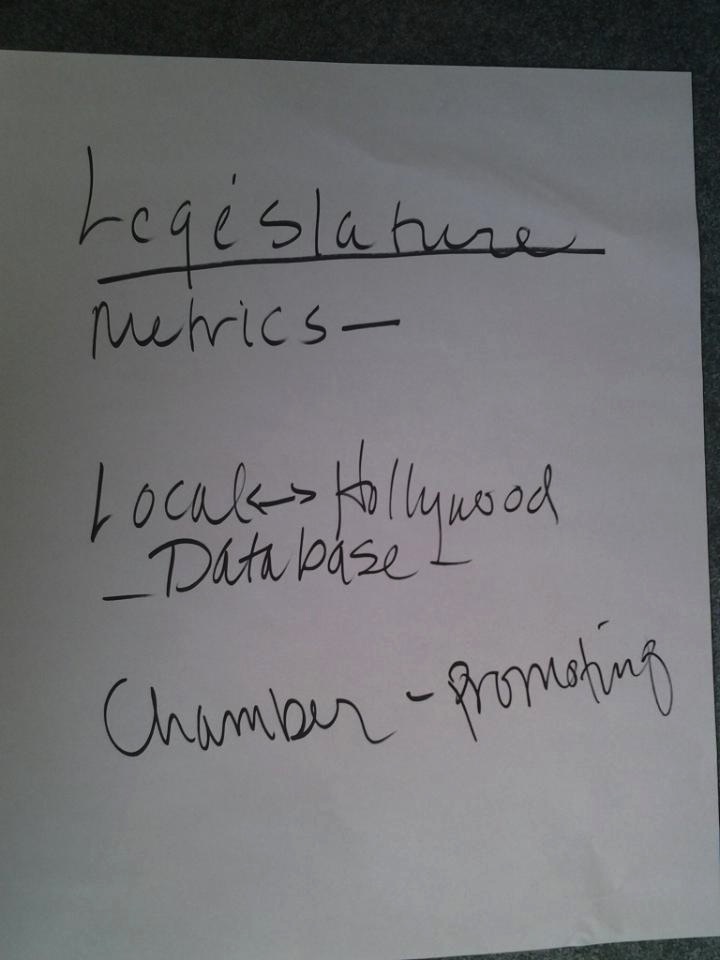 Legislature
Metrics —
Local <-> Hollywood
— Database —
Chamber - promoting